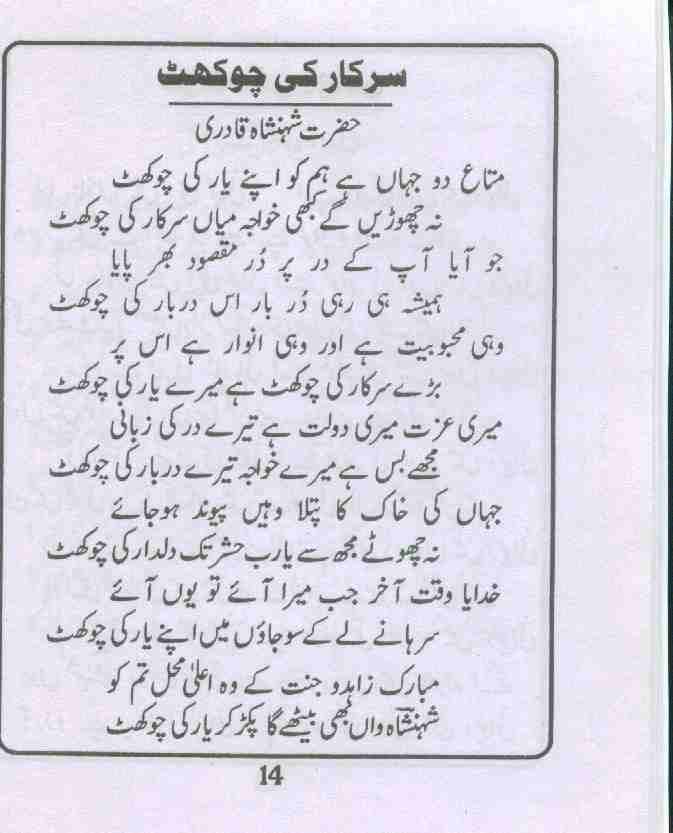 سرکار کی چوکھٹ
حضرت شہنشاہ قادری
متاع دو جہاں ہے ہم کو اپنے یار کی چوکھٹ
نہ چھوڑیں گے کبھی خواجہ میاں سرکار کی چوکھٹ
جو آیا آپ کے در پر دُر مقصود بھر پایا
ہمیشہ ہی رہی دُر بار اس دربار کی چوکھٹ
وہی محبوبیت ہے اور وہی انوار ہے اس پر
بڑے سرکار کی چوکھٹ ہے میرے یار کی چوکھٹ
میری عزت میری دولت ہے تیرے در کی زبانی
مجھے بس ہے میرے خواجہ تیرے دربار کی چوکھٹ
جہاں کی خاک کا پتلا وہیں پیوند ہوجائے
نہ چھوٹے مجھ سے یارب حشر تک دلدار کی چوکھٹ
خدایا وقت آخر جب میرا آئے تو یوں آئے
سرہانے لے کے سوجاؤں میں اپنے یار کی چوکھٹ
مبارک زاہدو جنت کے وہ اعلیٰ محل تم کو
شہنشاہ واں بھی بیٹھے گا پکڑ کر یار کی چوکھٹ
14